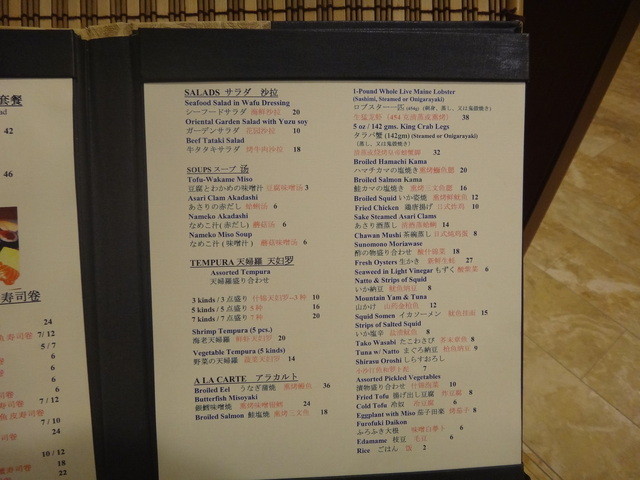 套餐
42
46
寿司卷
6
7 / 12
5 / 7
6
6
6
7 / 12
7 / 10
24
10 / 12
18
22
SALADS サラダ 沙拉
Seafood Salad in Wafu Dressing
シーフードサラダ 海鲜沙拉 20
Oriental Garden Salad with Yuzu soy
ガーデンサラダ 花园沙拉 10
Beef Tataki Salad
牛タタキサラダ 烤牛肉沙拉 18
SOUPS スープ 汤
Tofu-Wakame Miso
豆腐とわかめの味噌汁 豆腐味噌汤 3
Asari Clam Akadashi
あさりの赤だし 蛤蜊汤 6
Nameko Akadashi
なめこ汁 (赤だし) 蘑菇汤 6
Nameko Miso Soup
なめこ汁 (味噌汁) 蘑菇味噌汤 6
TEMPURA 天婦羅 天妇罗
Assorted Tempura
天婦羅盛り合わせ
3 kinds / 3 点盛り 什锦天妇罗-3 种 10
5 kinds / 5 点盛り 5 种 16
7 kinds / 7 点盛り 7 种 20
Shrimp Tempura (5 pcs.)
海老天婦羅 20
Vegetable Tempura (5 kinds)
野菜の天婦羅 蔬菜天妇罗 14
A LA CARTE アラカルト
Broiled Eel うなぎ蒲焼 蒸烤鳗鱼 36
Butterfish Misoyaki
銀鱈味噌焼 24
Broiled Salmon 鮭塩焼 蒸烤三文鱼 18
1-Pound Whole Live Maine Lobster
(Sashimi, Steamed or Onigarayaki)
ロブスター一匹 (454g) (刺身、蒸し、又は鬼殻焼き)
38
5 oz / 142 gms. King Crab Legs
タラバ蟹 (142gm) (Steamed or Onigarayaki)
(蒸し、又は鬼殻焼き)
32
Broiled Hamachi Kama
ハマチカマの塩焼き 20
Broiled Salmon Kama
鮭カマの塩焼き 蒸烤三文鱼鳃 16
Broiled Squid いか姿焼 蒸烤鲜鱿鱼 12
Fried Chicken 鶏唐揚げ 日式炸鸡 10
Sake Steamed Asari Clams
あさり酒蒸し 清酒蒸蛤蜊 14
Chawan Mushi 茶碗蒸し 日式炖鸡蛋 8
Sunomono Moriawase
酢の物盛り合わせ 18
Fresh Oysters 生かき 新鲜生蚝 27
Seaweed in Light Vinegar もずく 6
Natto & Strips of Squid
いか納豆 鱿鱼纳豆 8
Mountain Yam & Tuna
山かけ 12
Squid Somen イカソーメン 15
Strips of Salted Squid
いか塩辛 8
Tako Wasabi たこわさび 8
Tuna w/ Natto まぐろ納豆 9
Shirasu Oroshi しらすおろし
7
Assorted Pickled Vegetables
漬物盛り合わせ 10
Fried Tofu 揚げ出し豆腐 炸豆腐 8
Cold Tofu 冷奴 冷豆腐 6
Eggplant with Miso 茄子田楽 烤茄子 8
Furofuki Daikon
ふろふき大根 味噌白萝卜 6
Edamame 枝豆 毛豆 6
Rice ごはん 饭 2